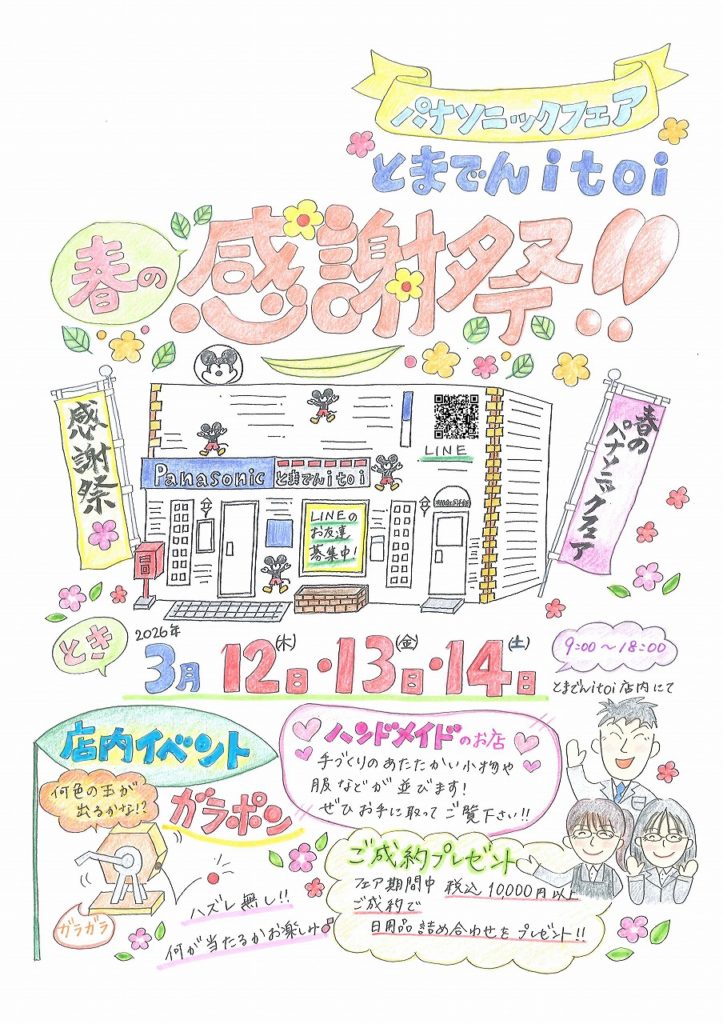 パナソニックフェア
とまでんitoi
春の
感謝祭!!
感謝祭
春のパナソニックフェア
LINE
Panasonic とまでんitoi
LINEの
お友達
募集中!
とき
2026年
3月12日(木)・13日(金)・14日(土)
9:00〜18:00
とまでんitoi店内にて
店内イベント
何色の玉が
出るかな!?
ガラポン
ガラガラ
ハズレ無し!!
何が当たるかお楽しみ♪
ハンドメイドのお店
手づくりのあたたかい小物や
服などが並びます!
ぜひお手に取ってご覧下さい!!
ご成約プレゼント
フェア期間中 税込10,000円以上
ご成約で
日用品詰め合わせをプレゼント!!